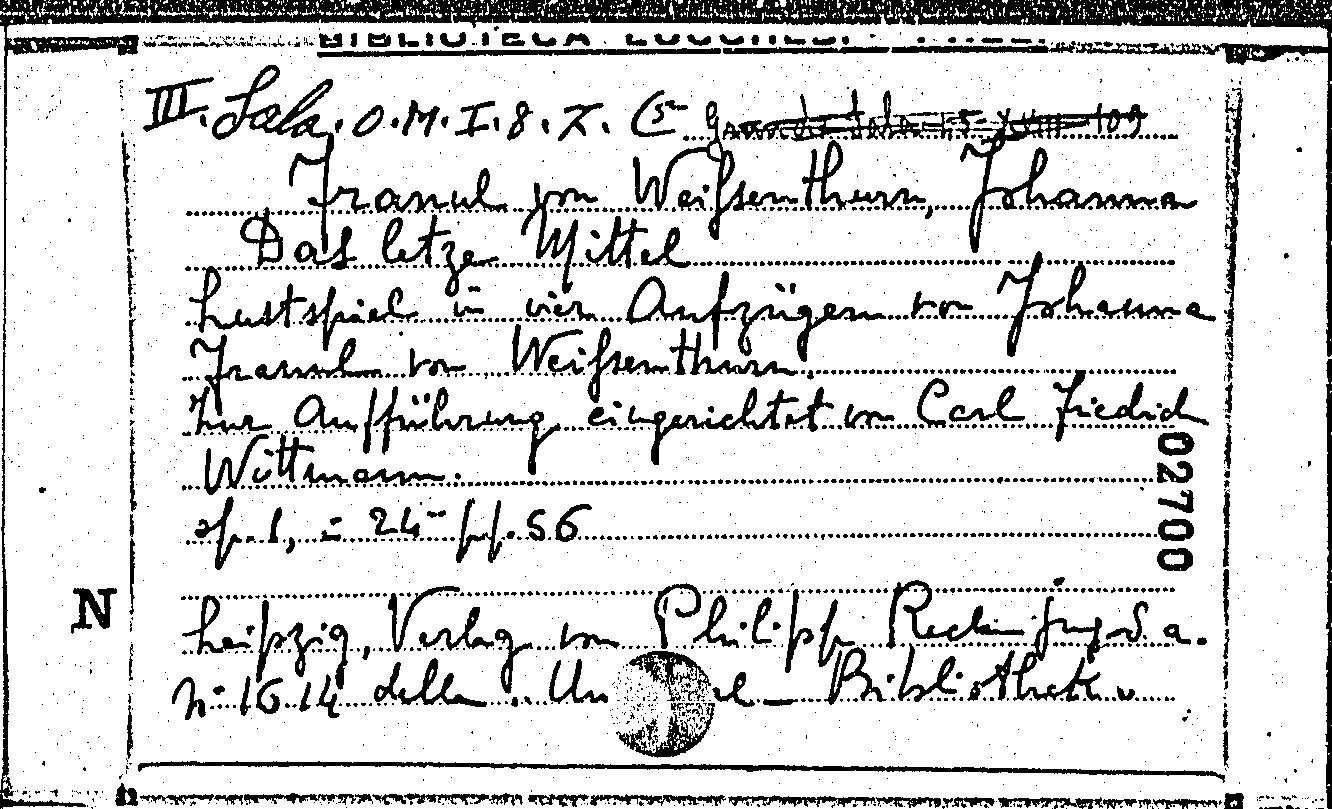 BIBLIOTECA LUCCHESI
III. Sala. O.M.I.8.Z. (5
Franul von Weiſsenthurn, Johanna
Das letze Mittel
Lustspiel in vier Aufzügen von Johanna
Franul von Weiſsenthurn.
Zur Aufführung eingerichtet von Carl Fiedrich
Wittmann.
op. 1, in 24° pp. 56
02700
N
Leipzig, Verlag von Philipp Reclam jun. S. a.
N. 1614 della "Un el - Bibliothek"